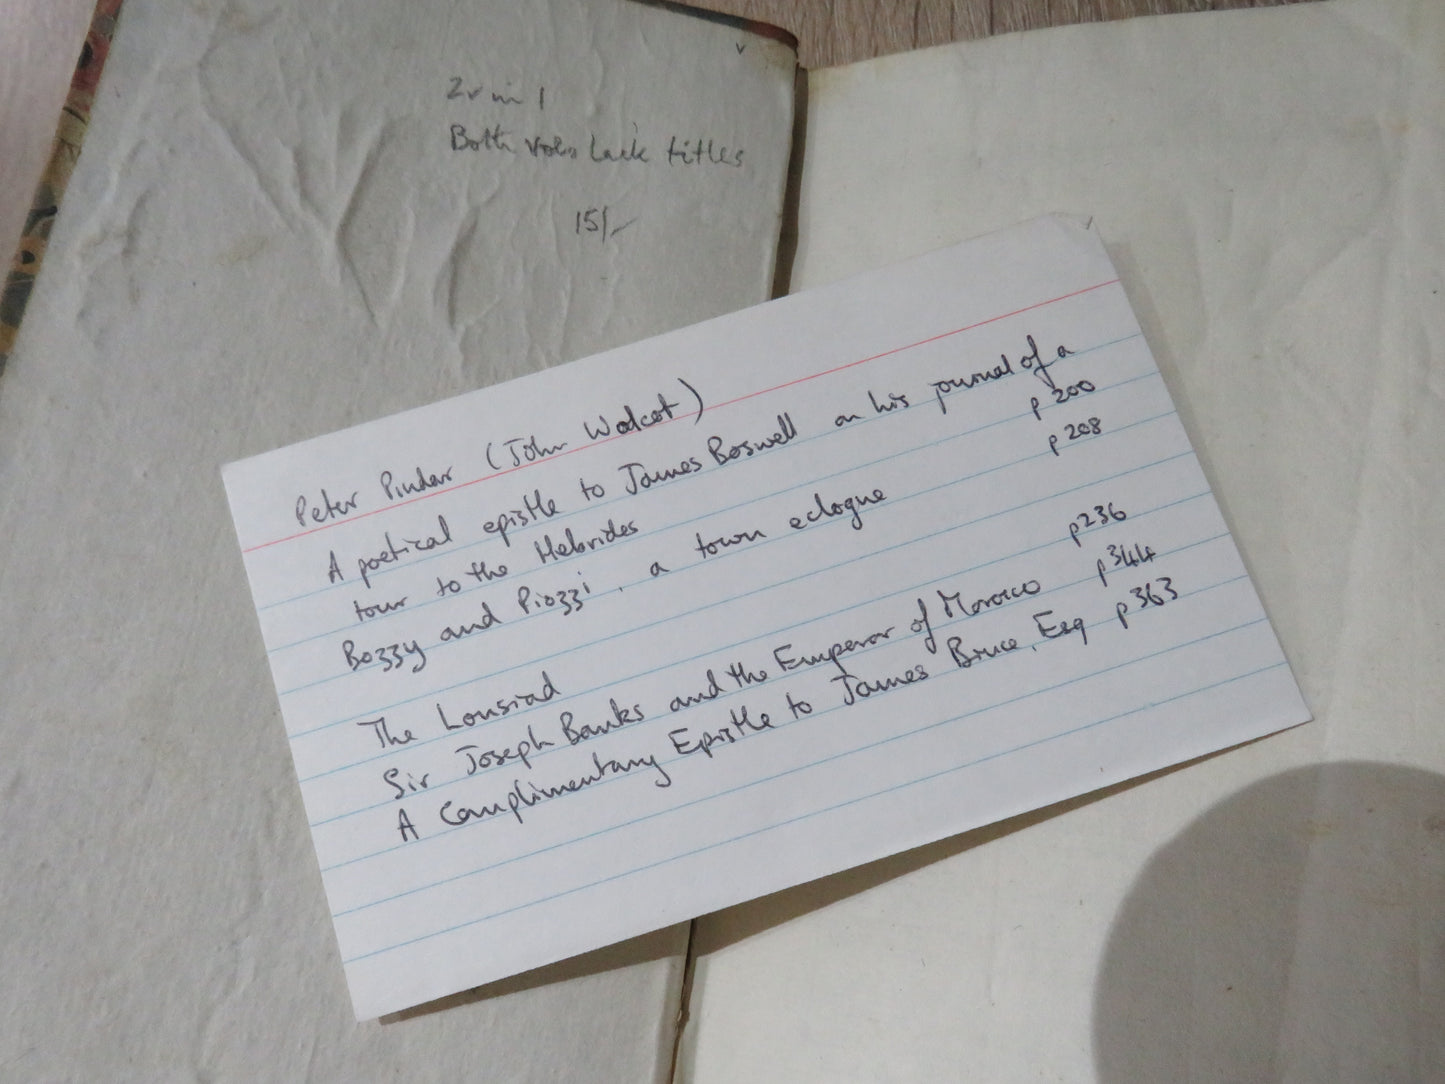 v
2v in 1
Both vols lack titles
15/-
Peter Pindar (John Wodcot)
A poetical epistle to James Boswell on his journal of a
tour to the Hebrides p 200
Bozzy and Piozzi, a town eclogue p 208
The Lousiad p 236
Sir Joseph Banks and the Emperor of Morocco p 344
A Complimentary Epistle to James Bruce, Esq p 363